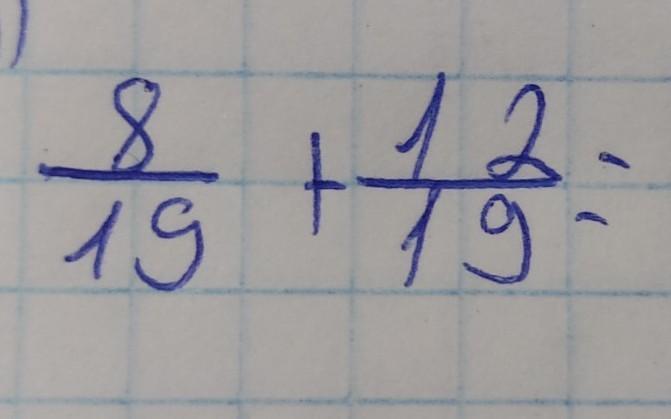 8/19 + 12/19 =